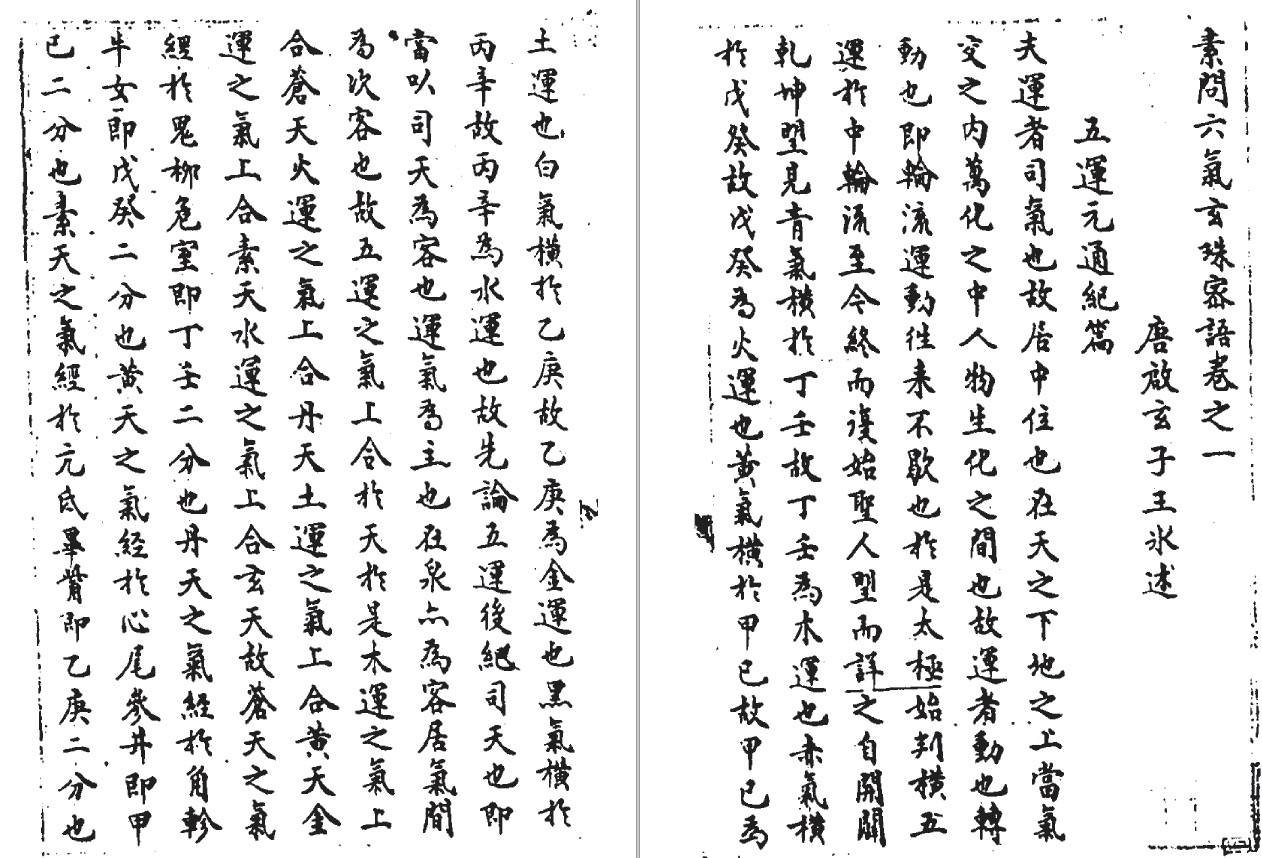 素問六氣玄珠密語卷之一
唐啟玄子王氷述
五運元通紀篇
夫運者司氣也故居中位也在天之下地之上當氣
交之內萬化之中人物生化之間也故運者動也轉
動也即輪流運動徃来不歇也於是太極始判橫五
運於中輪流至今終而復始聖人朢而詳之自開闢
乾坤朢見青氣橫於丁壬故丁壬為木運也赤氣橫
於戊癸故戊癸為火運也黃氣橫於甲己故甲己為
土運也白氣橫於乙庚故乙庚為金運也黑氣橫於
丙辛故丙辛為水運也故先論五運後紀司天也即
當以司天為客也運氣為主也在泉亦為客居氣間
為次客也故五運之氣上合於天於是木運之氣上
合蒼天火運之氣上合丹天土運之氣上合黃天金
運之氣上合素天水運之氣上合玄天故蒼天之氣
經於鬼柳危室即丁壬二分也丹天之氣經於角軫
牛女即戊癸二分也黃天之氣経於心尾參井即甲
己二分也素天之氣經於亢氐畢觜即乙庚二分也